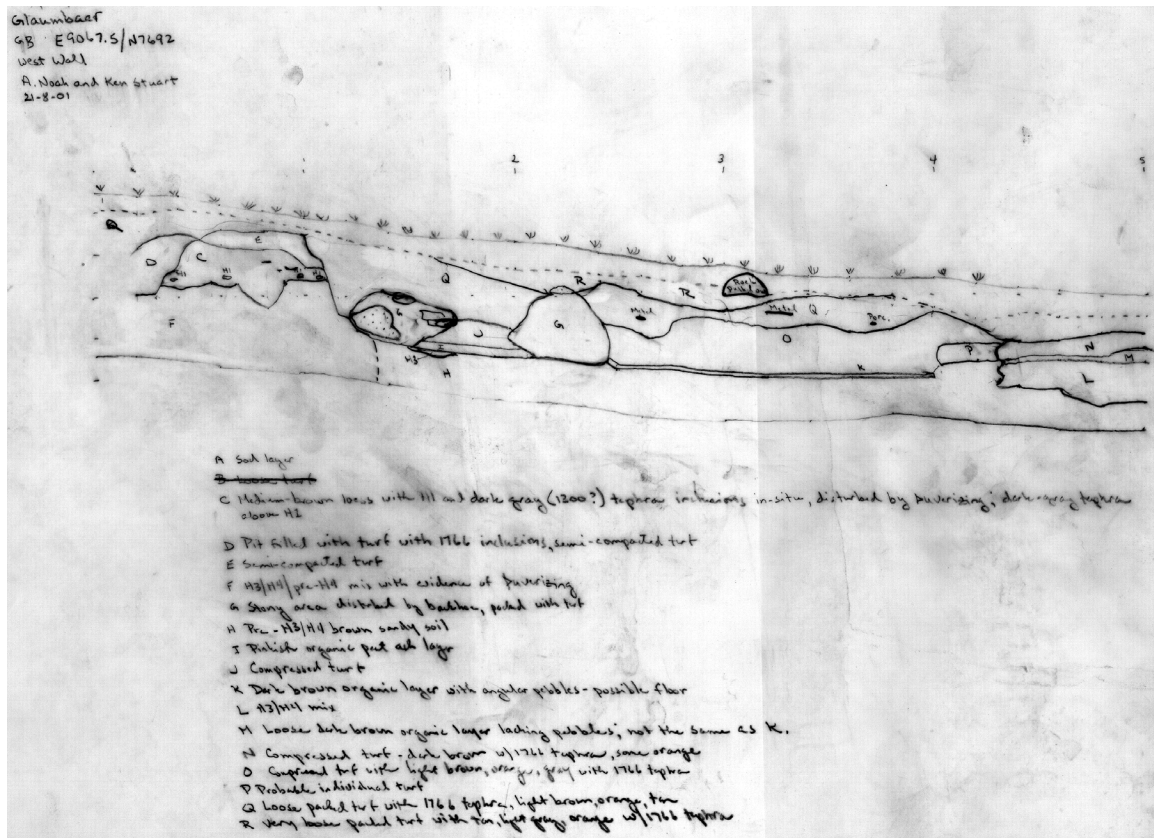 Glaumbaer
GB E9067.5/N7692
West Wall
A. Noah and Ken Stuart
21-8-01
2
3
4
5
Q
D
C
E
H1
F
Q
R
R
Rock
Q
Metal
Metal
Porc.
G
G
J
I
H3
H
O
K
P
N
M
L
A Soil layer
B Loose turf
C Medium brown locus with H1 and dark gray (1200?) tephra inclusions in-situ, disturbed by puverizing; dark-gray tephra
above H1
D Pit filled with turf with 1766 inclusions, semi-compacted turf
E Semi-compacted turf
F H3/H4/pre-H4 mix with evidence of puverizing
G Stony area disturbed by backhoe, packed with turf
H Pre-H3/H4 brown sandy soil
I Pinkish organic peat ash layer
J Compressed turf
K Dark brown organic layer with angular pebbles - possible floor
L H3/H4 mix
M Loose dark brown organic layer lacking pebbles, not the same as K.
N Compressed turf, dark brown w/1766 tephra, some orange
O Compressed turf with light brown, orange, gray with 1766 tephra
P Probable individual turf
Q Loose packed turf with 1766 tephra, light brown, orange, tan
R Very loose packed turf with tan, light gray, orange w/1766 tephra